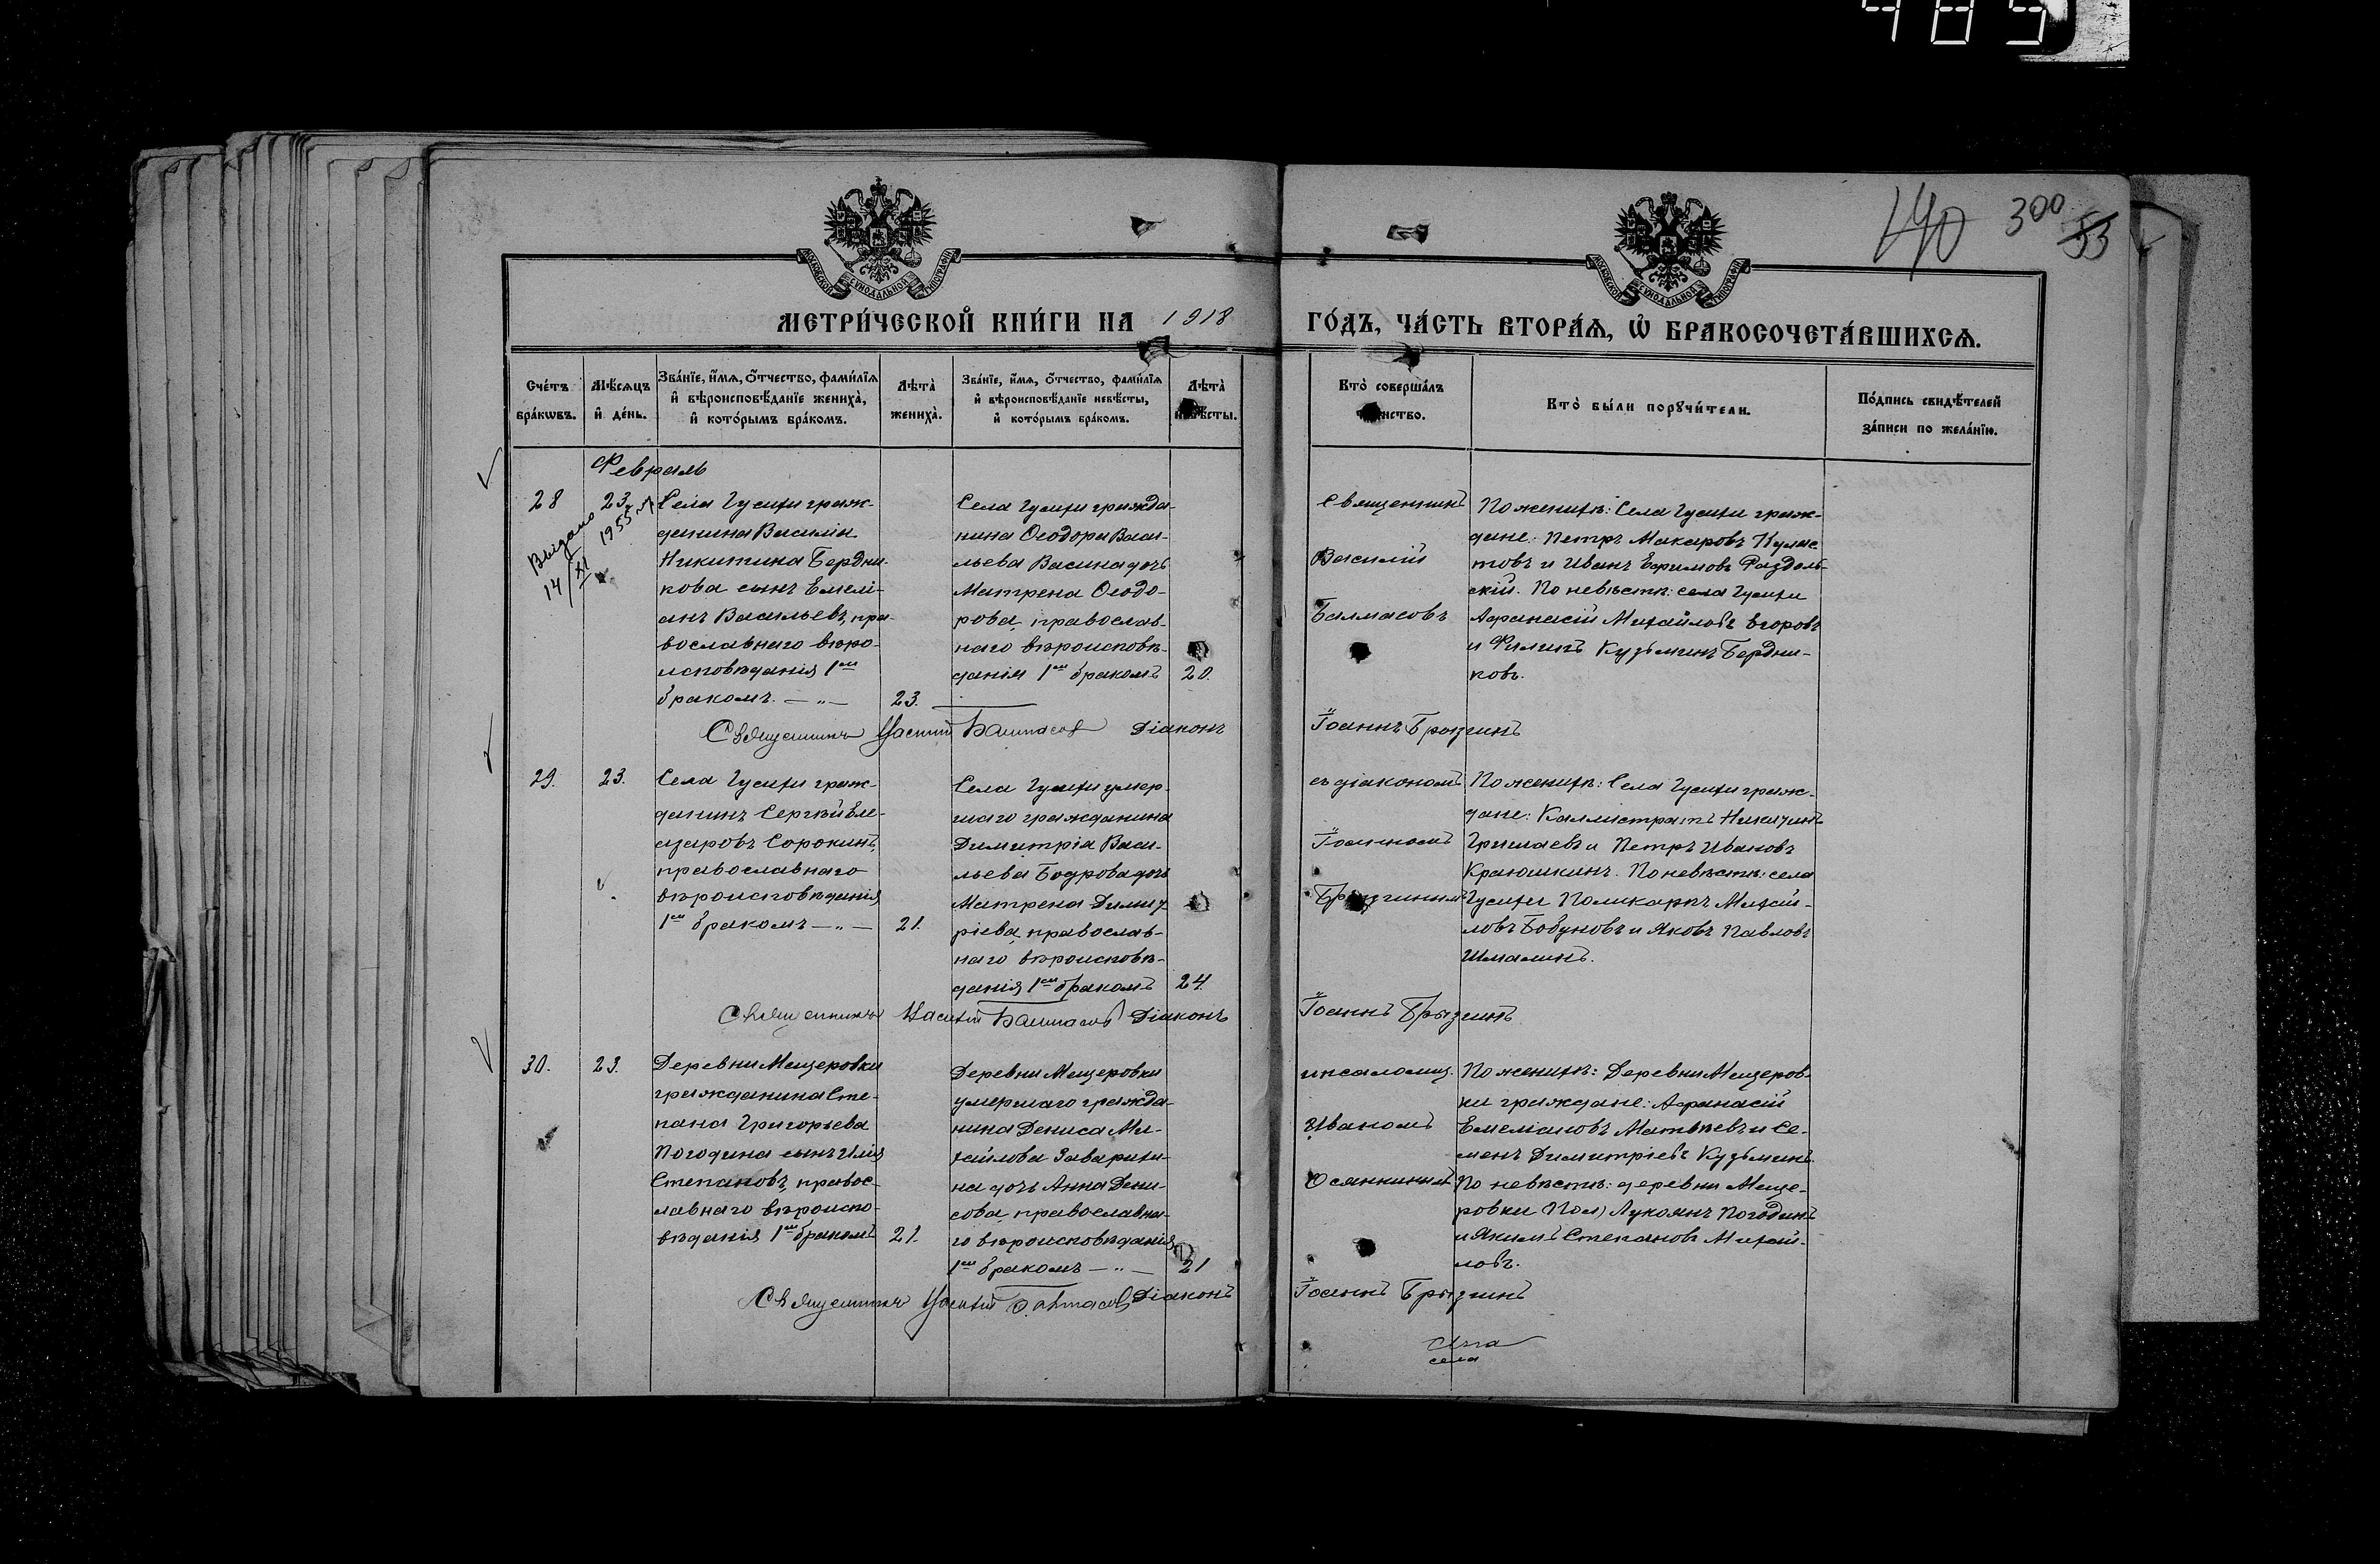 485
140 300 53
МОСКОВСКОЙ СѴНОДАЛЬНОЙ ТИПОГРАФІИ
МОСКОВСКОЙ СѴНОДАЛЬНОЙ ТИПОГРАФІИ
МЕТРИ́ЧЕСКОЙ КНИ́ГИ НА 1918
ГО́ДЪ, ЧА́СТЬ ВТОРА́Ѧ, Ѡ҆ БРАКОСОЧЕТА́ВШИХСѦ.
Сче́тъ
бра́кѡвъ.
Мѣ́сѧцъ
и҆ де́нь.
Зва́нїе, и҆́мѧ, ѻ҆́тчество, фами́лїѧ
и҆ вѣроисповѣ́данїе жениха̀,
и҆ кото́рымъ бра́комъ.
Лѣта̀
жениха̀.
Зва́нїе, и҆́мѧ, ѻ҆́тчество, фами́лїѧ
и҆ вѣроисповѣ́данїе невѣ́сты,
и҆ кото́рымъ бра́комъ.
Лѣта̀
невѣ́сты.
Кто̀ соверша́лъ
таинство.
Кто̀ бы́ли порꙋчи́тели.
По́дпись свидѣ́телей
за́писи по жела́нїю.
Февраль
28
23
Выдано
14/XI 1955 г.
Села Гусихи граж-
данина Василія
Никитина Бердни-
кова сынъ Емелі-
анъ Васильевъ, пра-
вославнаго вѣро-
исповѣданія 1ымъ
бракомъ. — „ —
23.
Села Гусихи гражда-
нина Ѳеодора Васи-
льева Васина дочь
Матрена Ѳеодо-
рова, православ-
наго вѣроисповѣ-
данія 1ымъ бракомъ
20.
Священникъ
Василій
Балмасовъ
По женихѣ: Села Гусихи граж-
дане: Петръ Макаровъ
и Иванъ Ефимовъ Раздоль-
скій. По невѣстѣ: села Гусихи
Афанасій Михайловъ Егоровъ
и Филипъ Кузьминъ Бердни-
ковъ.
Священникъ Василій Балмасовъ Діаконъ
Іоаннъ Брызгинъ
29.
23.
Села Гусихи граж-
данинъ Сергѣй Еле-
азаровъ Сорокинъ,
православнаго
вѣроисповѣданія
1ымъ бракомъ — „ —
21.
Села Гусихи умер-
шаго гражданина
Димитрія Васи-
льева Бодрова дочь
Матрена Димит-
ріева, православ-
наго вѣроисповѣ-
данія 1ымъ бракомъ
24.
съ діакономъ
Іоанномъ
Брызгинымъ
По женихѣ: Села Гусихи граж-
дане: Каллистратъ Никитинъ
Гришаевъ и Петръ Ивановъ
Краюшкинъ. По невѣстѣ: села
Гусихи Поликарпъ Михай-
ловъ Бобуновъ и Яковъ Павловъ
Шмалинъ.
Священникъ Василій Балмасовъ Діаконъ
Іоаннъ Брызгинъ
30.
23.
Деревни Мещеровки
гражданина Сте-
пана Григорьева
Погодина сынъ Илія
Степановъ, правос-
лавнаго вѣроиспо-
вѣданія 1ымъ бракомъ
21.
Деревни Мещеровки
умершаго гражда-
нина Дениса Ми-
хайлова Заварихи-
на дочь Анна Дени-
сова, православна-
го вѣроисповѣданія
1ымъ бракомъ — „ —
21
и псаломщ.
Иваномъ
Осянкинымъ
По женихѣ: Деревни Мещеров-
ки граждане: Афанасій
Емеліановъ Матвѣевъ и Се-
менъ Димитріевъ Кузьминъ.
По невѣстѣ: деревни Меще-
ровки Лукоянъ Погодинъ
и Якимъ Степановъ Михай-
ловъ.
Священникъ Василій Балмасовъ Діаконъ
Іоаннъ Брызгинъ
села